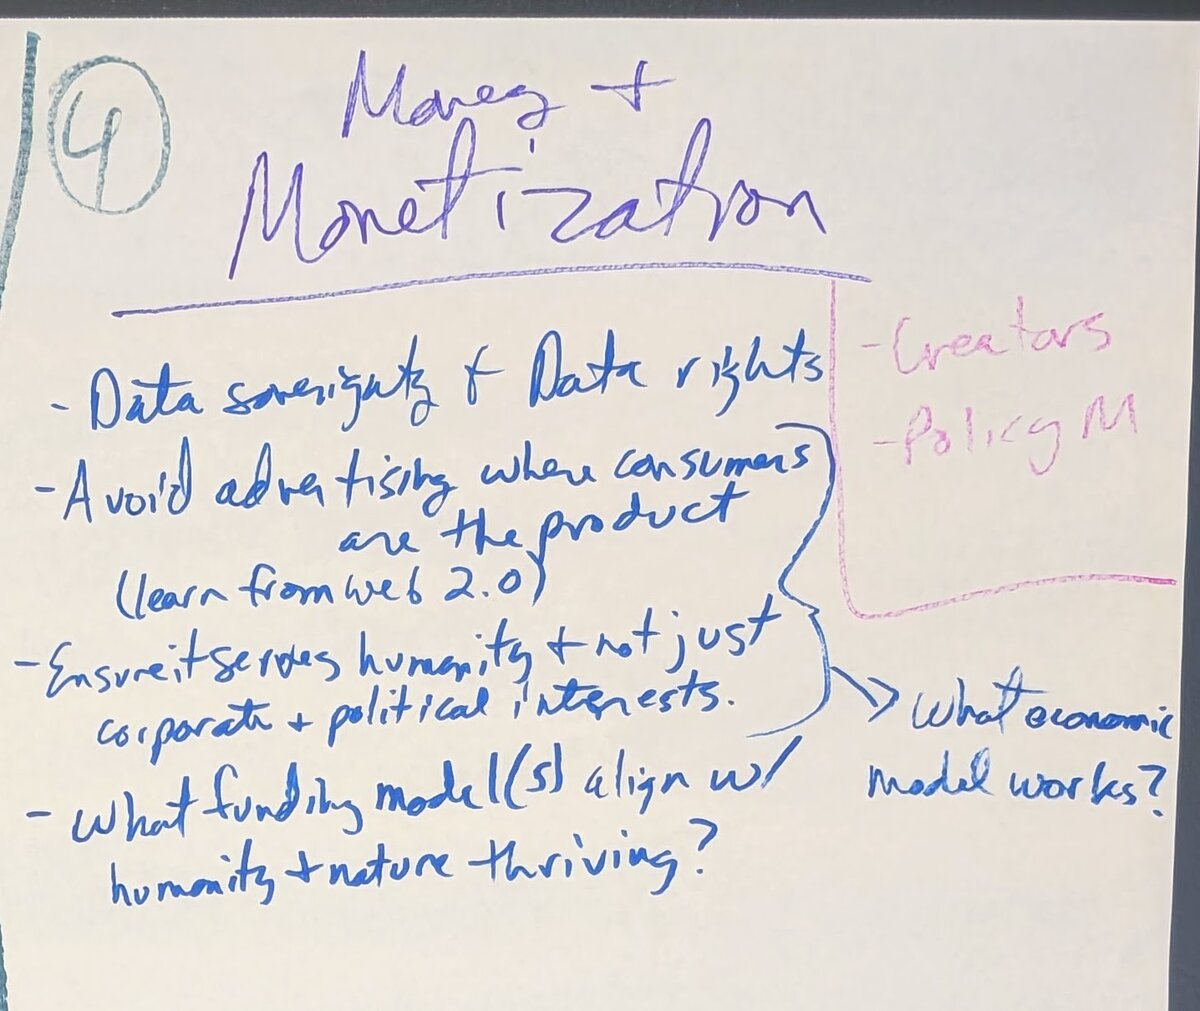 4
Money +
Monetization
- Data soverignty & Data rights
- Avoid advertising where consumers
are the product
(learn from web 2.0)
- Ensure it serves humanity + not just
corporate + political interests.
- What funding model(s) align w/
humanity + nature thriving?
- Creators
- Policy M
What economic
model works?